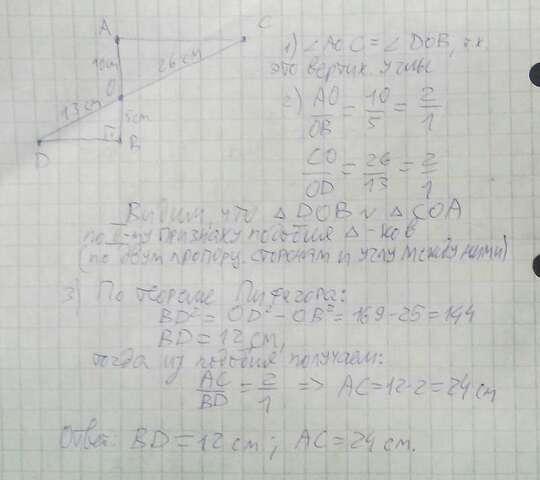 A
C
10cm
26cm
O
13cm
5cm
D
B
1) ∠AOC = ∠DOB, т.к.
это вертик. углы
2) AO/OB = 10/5 = 2/1
CO/OD = 26/13 = 2/1
Видим, что △DOB ~ △COA
по признаку подобия △-ков
(по двум пропорц. сторонам и углу между ними)
3) По теореме Пифагора:
BD² = OD² - OB² = 169 - 25 = 144
BD = 12 см,
тогда из подобия получаем:
AC/BD = 2/1 => AC = 12·2 = 24 см
Ответ: BD = 12 см; AC = 24 см.